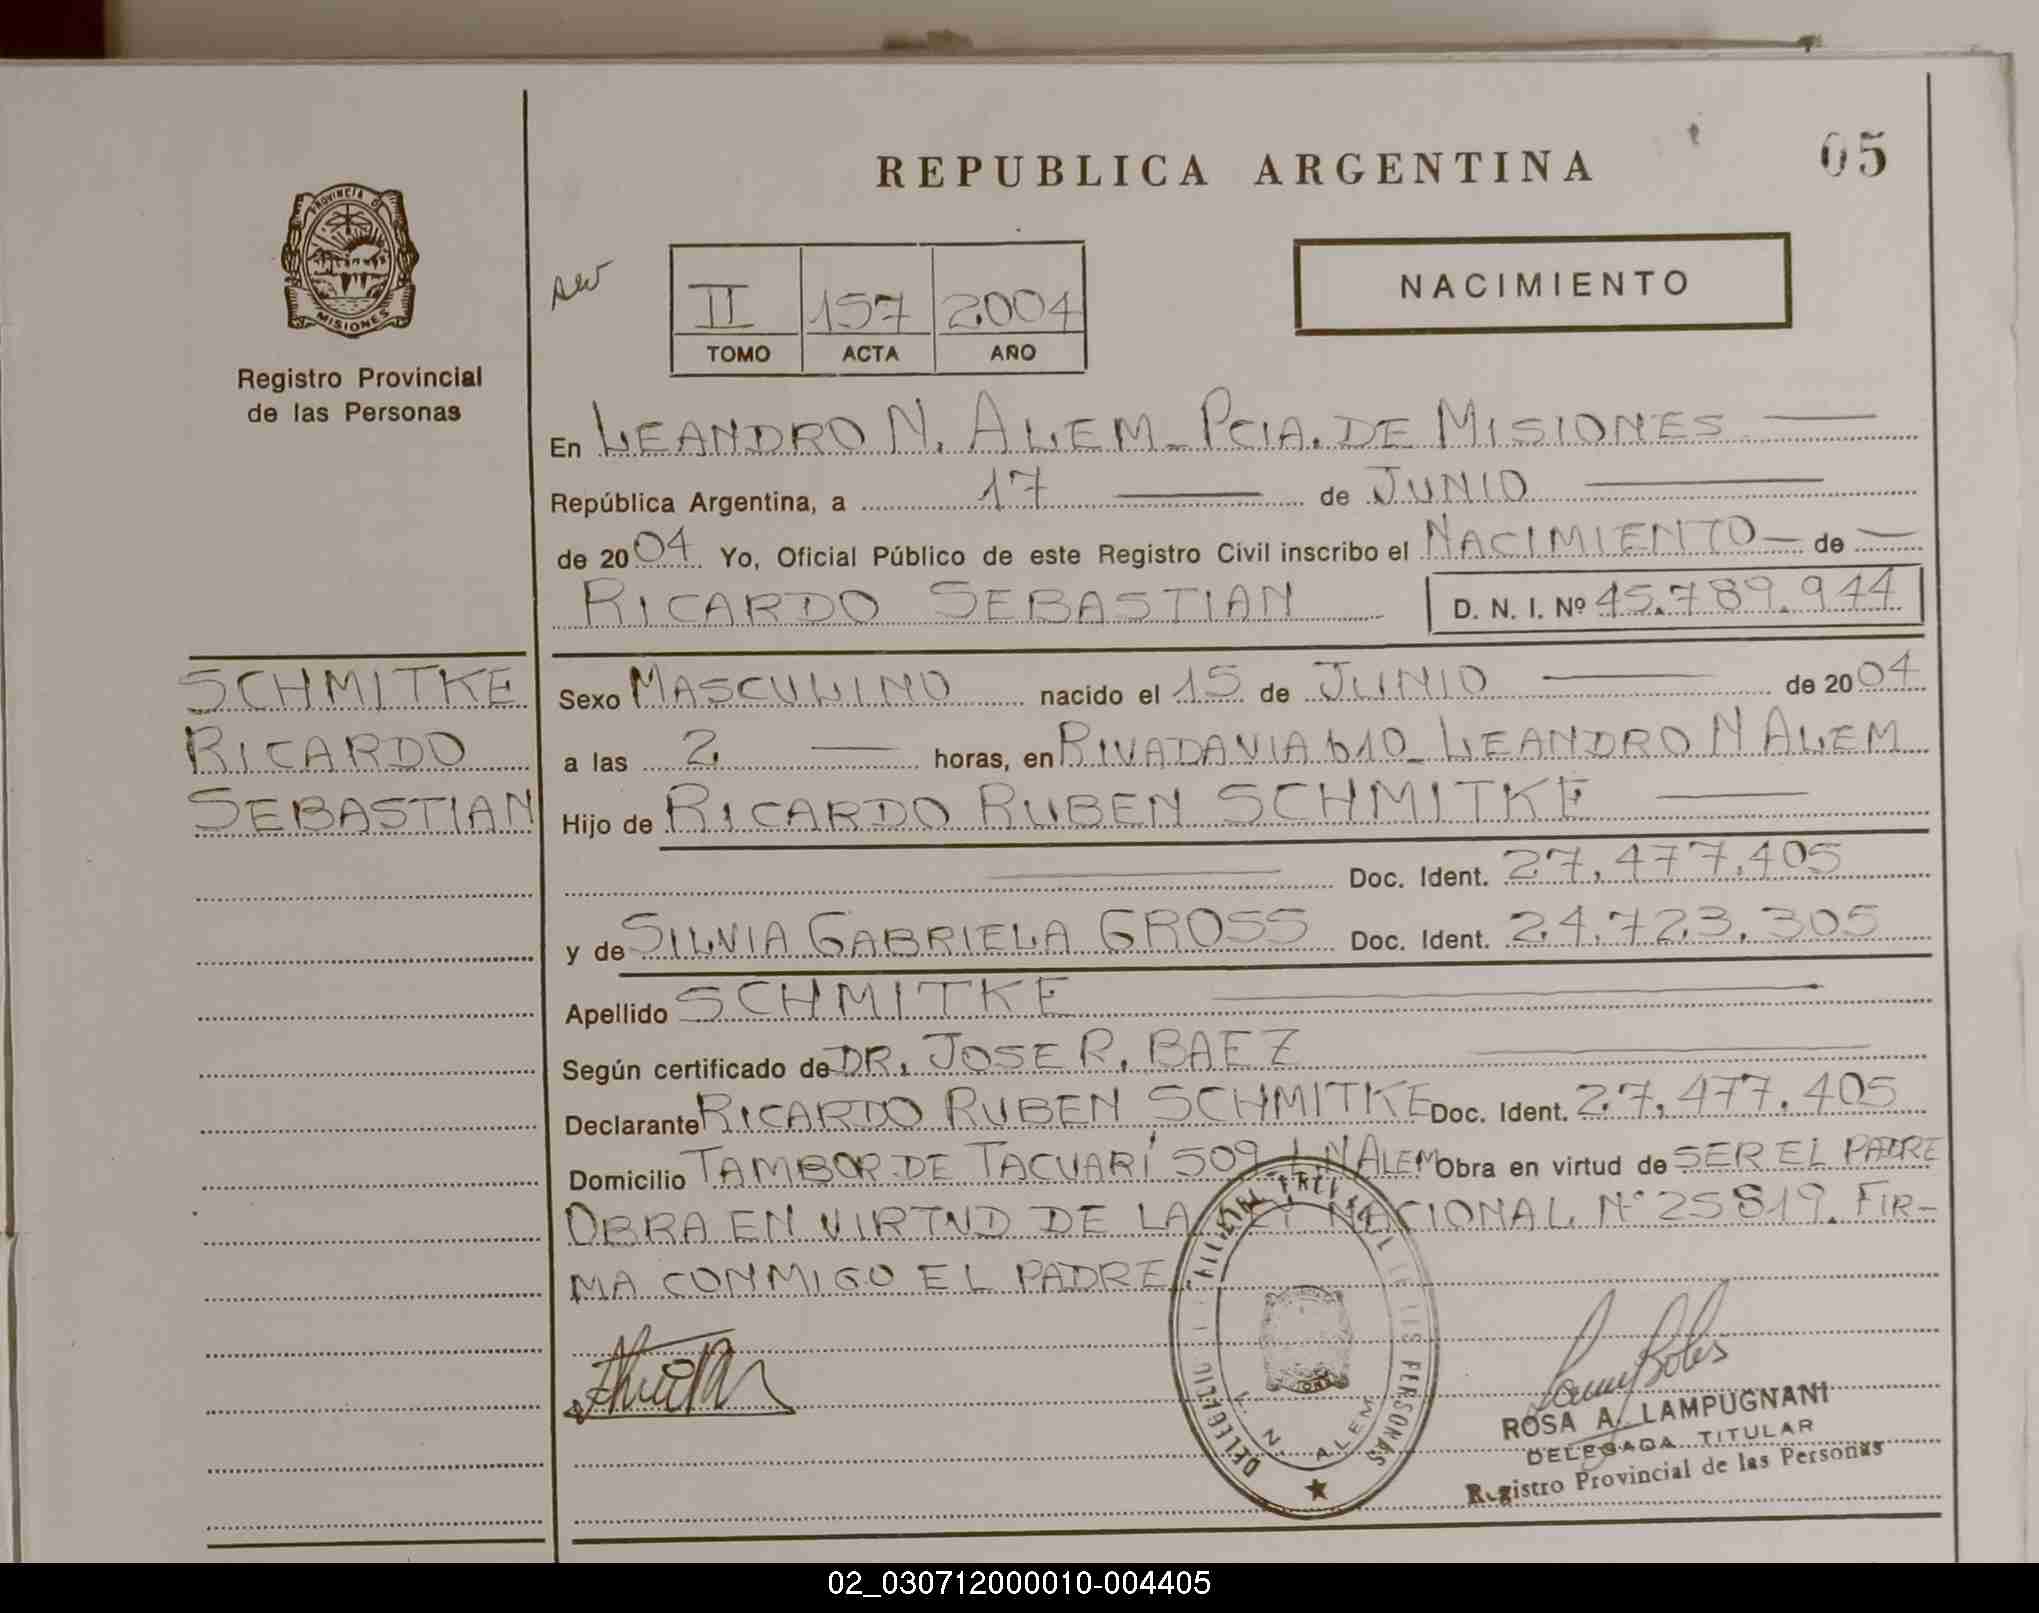 REPUBLICA ARGENTINA
05
PROVINCIA DE
MISIONES
Registro Provincial
de las Personas
NACIMIENTO
II 157 2004
TOMO ACTA AÑO
En LEANDRO N. ALEM - PCIA. DE MISIONES
República Argentina, a 17 de JUNIO
de 2004 Yo, Oficial Público de este Registro Civil inscribo el NACIMIENTO de
RICARDO SEBASTIAN D. N. I. Nº 45.789.944
SCHMITKE
RICARDO
SEBASTIAN
Sexo MASCULINO nacido el 15 de JUNIO de 2004
a las 2 horas, en RIVADAVIA 610 - LEANDRO N ALEM
Hijo de RICARDO RUBEN SCHMITKE
Doc. Ident. 27.477.405
y de SILVIA GABRIELA GROSS Doc. Ident. 24.723.305
Apellido SCHMITKE
Según certificado de DR. JOSE R. BAEZ
Declarante RICARDO RUBEN SCHMITKE Doc. Ident. 27.477.405
Domicilio TAMBOR DE TACUARÍ 509 L N ALEM Obra en virtud de SER EL PADRE
OBRA EN VIRTUD DE LA LEY NACIONAL Nº 25819. FIR-
MA CONMIGO EL PADRE
PERSONAS
L. N. ALEM
ROSA A. LAMPUGNANI
DELEGADA TITULAR
Registro Provincial de las Personas
02_030712000010-004405